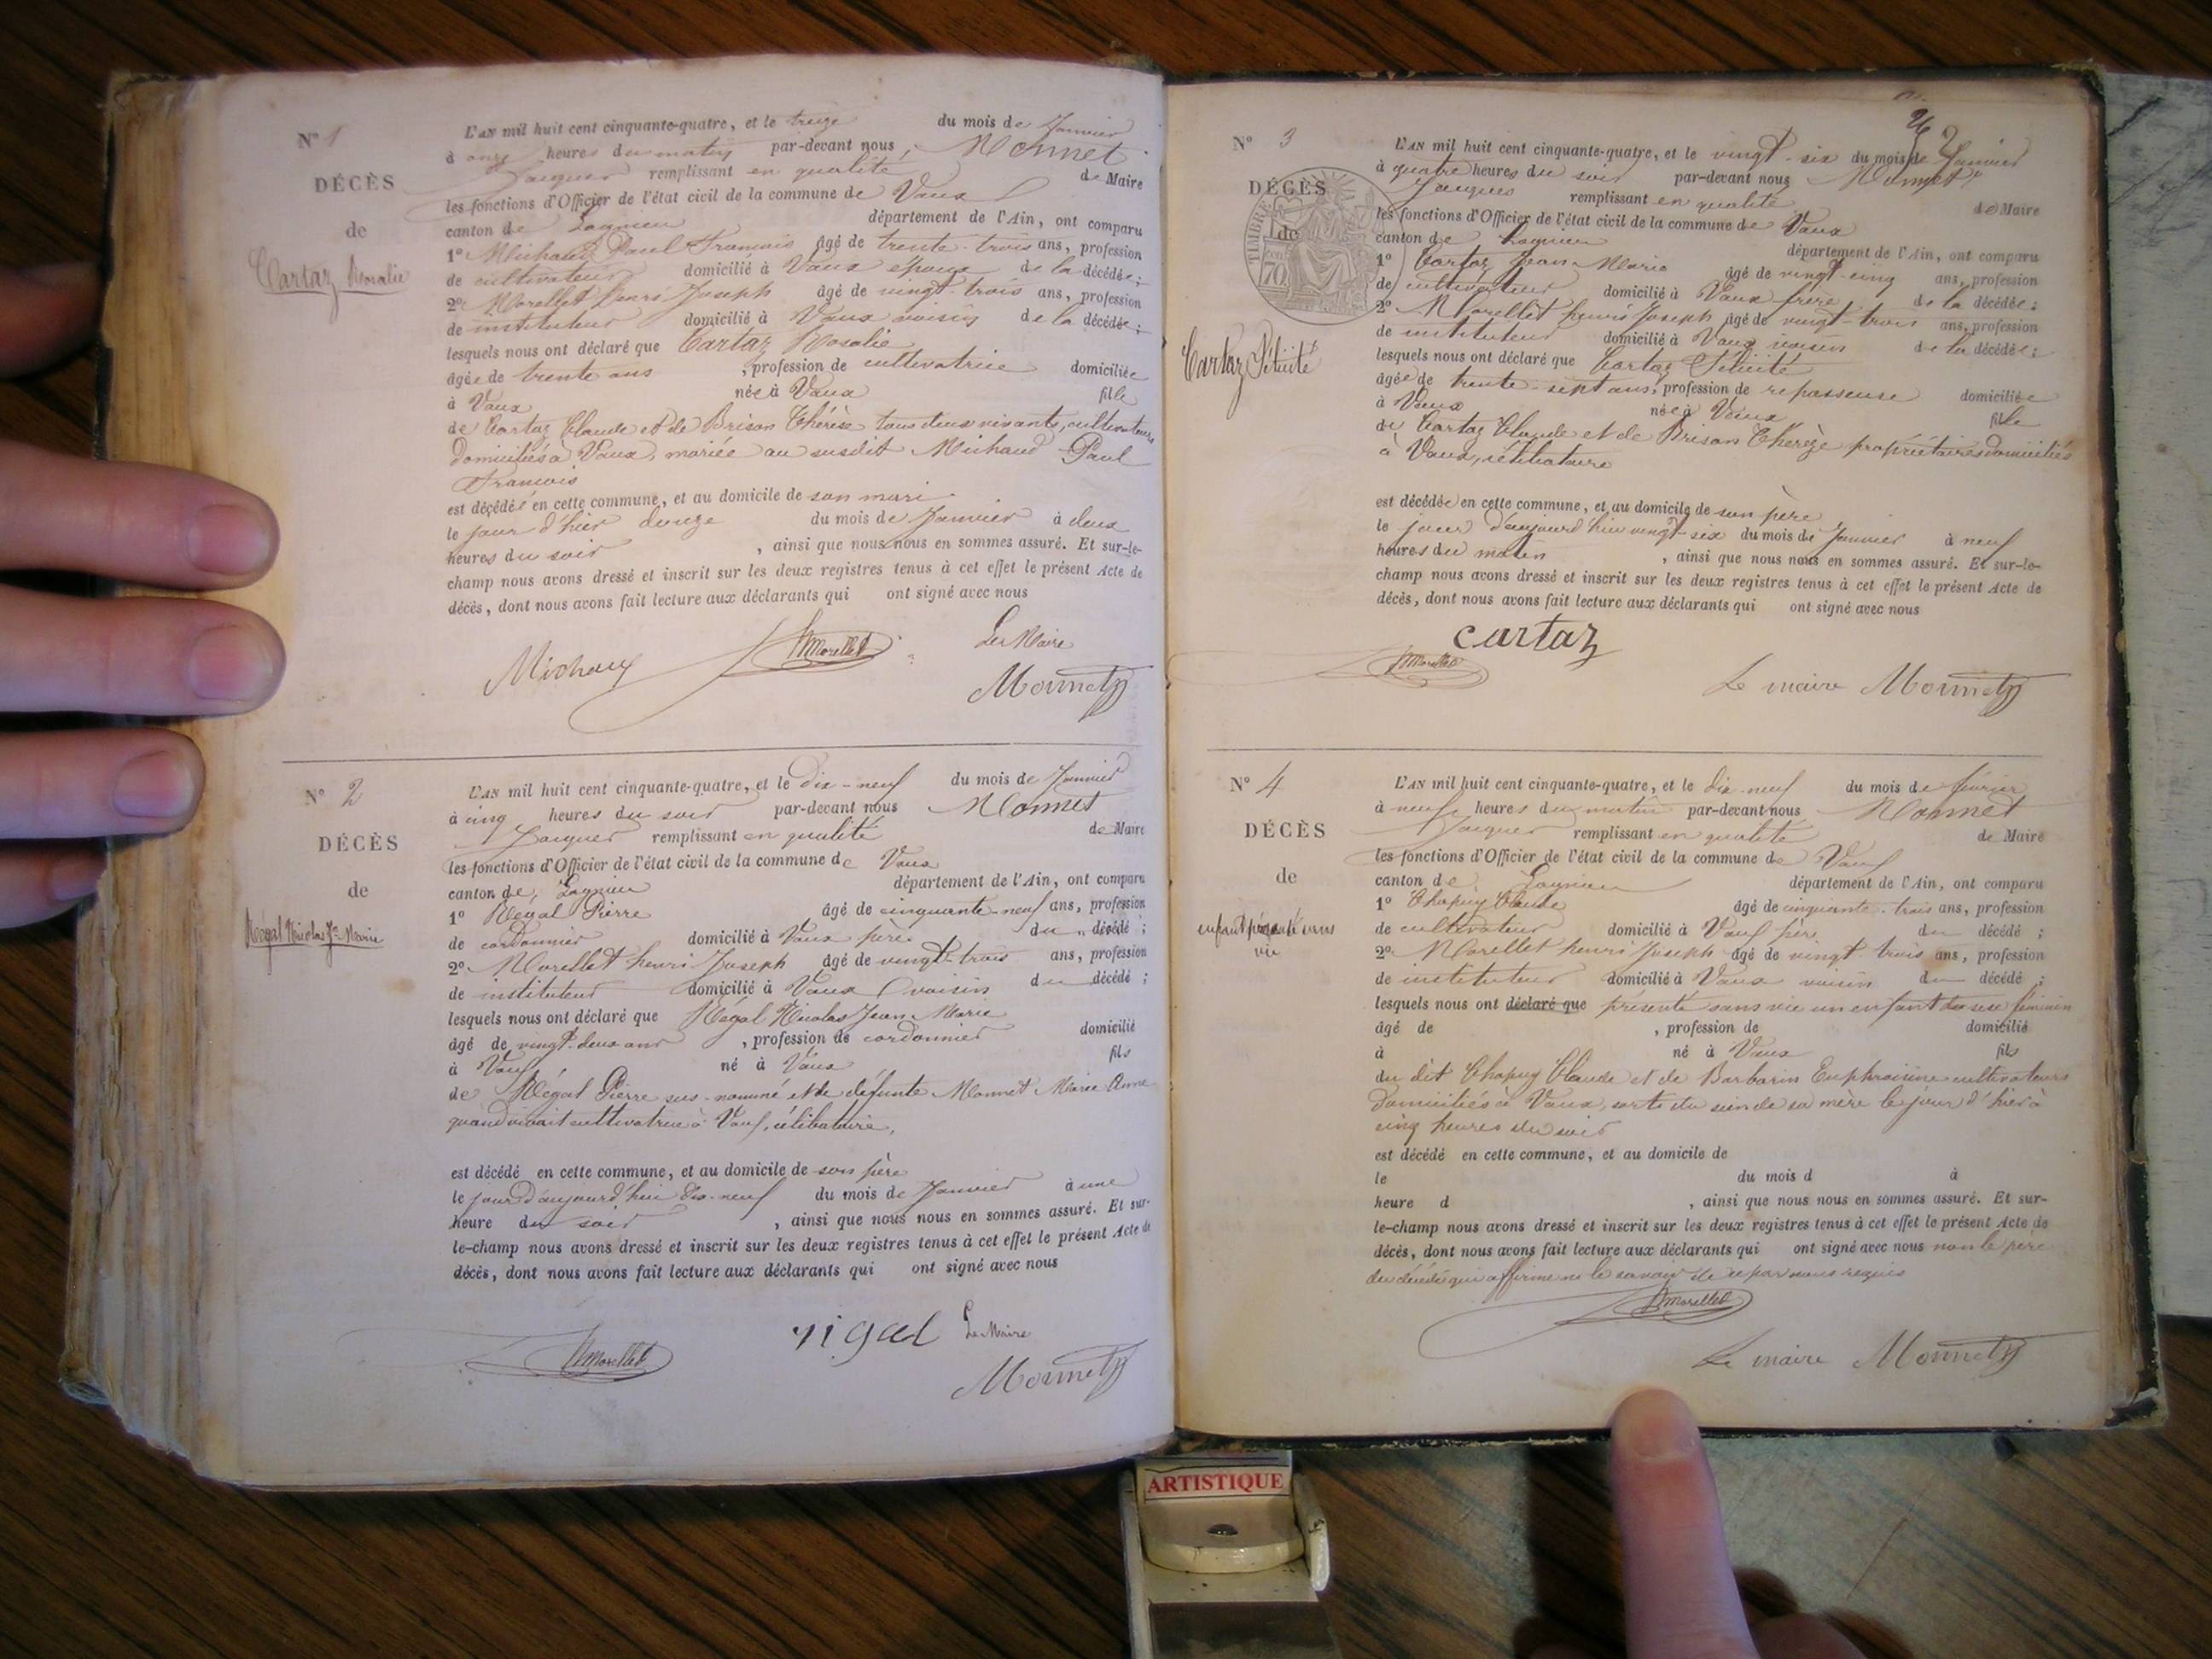 N° 1
DÉCÈS
de
Cartaz Rosalie
L'AN mil huit cent cinquante-quatre, et le treize du mois de Janvier
à onze heures du matin par-devant nous, Monnet
Jacques remplissant en qualité de Maire
les fonctions d'Officier de l'état civil de la commune de Vaux
canton de Lagnieu département de l'Ain, ont comparu
1° Michaud Paul François âgé de trente-trois ans, profession
de cultivateur domicilié à Vaux époux de la décédée;
2° Morellet henri Joseph âgé de vingt-trois ans, profession
de instituteur domicilié à Vaux voisin de la décédée;
lesquels nous ont déclaré que Cartaz Rosalie
âgée de trente ans, profession de cultivatrice domiciliée
à Vaux née à Vaux fille
de Cartaz Claude et de Brison Thérèse tous deux vivants, cultivateurs
domiciliés à Vaux, mariée au susdit Michaud Paul
François
est décédée en cette commune, et au domicile de son mari
le jour d'hier douze du mois de Janvier à deux
heures du soir, ainsi que nous nous en sommes assuré. Et sur-le-
champ nous avons dressé et inscrit sur les deux registres tenus à cet effet le présent Acte de
décès, dont nous avons fait lecture aux déclarants qui ont signé avec nous
Le Maire
Morellet
Monnet
N° 2
DÉCÈS
de
Régal Nicolas Jn Marie
L'AN mil huit cent cinquante-quatre, et le dix-neuf du mois de Janvier
à cinq heures du soir par-devant nous Monnet
Jacques remplissant en qualité de Maire
les fonctions d'Officier de l'état civil de la commune de Vaux
canton de Lagnieu département de l'Ain, ont comparu
1° Régal Pierre âgé de cinquante-neuf ans, profession
de cordonnier domicilié à Vaux père du décédé;
2° Morellet henri Joseph âgé de vingt-trois ans, profession
de instituteur domicilié à Vaux voisin du décédé;
lesquels nous ont déclaré que Régal Nicolas Jean Marie
âgé de vingt-deux ans, profession de cordonnier domicilié
à Vaux né à Vaux fils
de Régal Pierre sus-nommé et de défunte Monnet Marie Anne
quand vivait cultivatrice à Vaux, célibataire,
est décédé en cette commune, et au domicile de son père
le jour d'aujourd'hui dix-neuf du mois de Janvier à une
heure du soir, ainsi que nous nous en sommes assuré. Et sur-
le-champ nous avons dressé et inscrit sur les deux registres tenus à cet effet le présent Acte de
décès, dont nous avons fait lecture aux déclarants qui ont signé avec nous
rigal Le Maire
Morellet
Monnet
26
N° 3
DÉCÈS
de
TIMBRE
70
Cartaz Félicité
L'AN mil huit cent cinquante-quatre, et le vingt-six du mois de Janvier
à quatre heures du soir par-devant nous Monnet
Jacques remplissant en qualité de Maire
les fonctions d'Officier de l'état civil de la commune de Vaux
canton de Lagnieu département de l'Ain, ont comparu
1° Cartaz Jean-Marie âgé de vingt-cinq ans, profession
de cultivateur domicilié à Vaux frère de la décédée;
2° Morellet henri Joseph âgé de vingt-trois ans, profession
de instituteur domicilié à Vaux voisin de la décédée;
lesquels nous ont déclaré que Cartaz Félicité
âgée de trente-sept ans, profession de repasseuse domiciliée
à Vaux née à Vaux fille
de Cartaz Claude et de Brison Thérèze propriétaires domiciliés
à Vaux, célibataire
est décédée en cette commune, et au domicile de son père
le jour d'aujourd'hui vingt-six du mois de Janvier à neuf
heures du matin, ainsi que nous nous en sommes assuré. Et sur-le-
champ nous avons dressé et inscrit sur les deux registres tenus à cet effet le présent Acte de
décès, dont nous avons fait lecture aux déclarants qui ont signé avec nous
cartaz
Morellet
Le maire Monnet
N° 4
DÉCÈS
de
enfant présenté sans
vie
L'AN mil huit cent cinquante-quatre, et le dix-neuf du mois de février
à neuf heures du matin par-devant nous Monnet
Jacques remplissant en qualité de Maire
les fonctions d'Officier de l'état civil de la commune de Vaux
canton de Lagnieu département de l'Ain, ont comparu
1° Chapuy Claude âgé de cinquante-trois ans, profession
de cultivateur domicilié à Vaux père du décédé;
2° Morellet henri Joseph âgé de vingt-trois ans, profession
de instituteur domicilié à Vaux voisin du décédé;
lesquels nous ont déclaré que présenté sans vie un enfant du sexe féminin
âgé de , profession de domicilié
à né à Vaux fils
du dit Chapuy Claude et de Barbarin Euphraisine cultivateurs
domiciliés à Vaux, sorti du sein de sa mère le jour d'hier à
cinq heures du soir
est décédé en cette commune, et au domicile de
le du mois d à
heure d , ainsi que nous nous en sommes assuré. Et sur-
le-champ nous avons dressé et inscrit sur les deux registres tenus à cet effet le présent Acte de
décès, dont nous avons fait lecture aux déclarants qui ont signé avec nous non le père
du décédé qui affirme ne le savoir de ce par nous requis
Morellet
Le maire Monnet
ARTISTIQUE